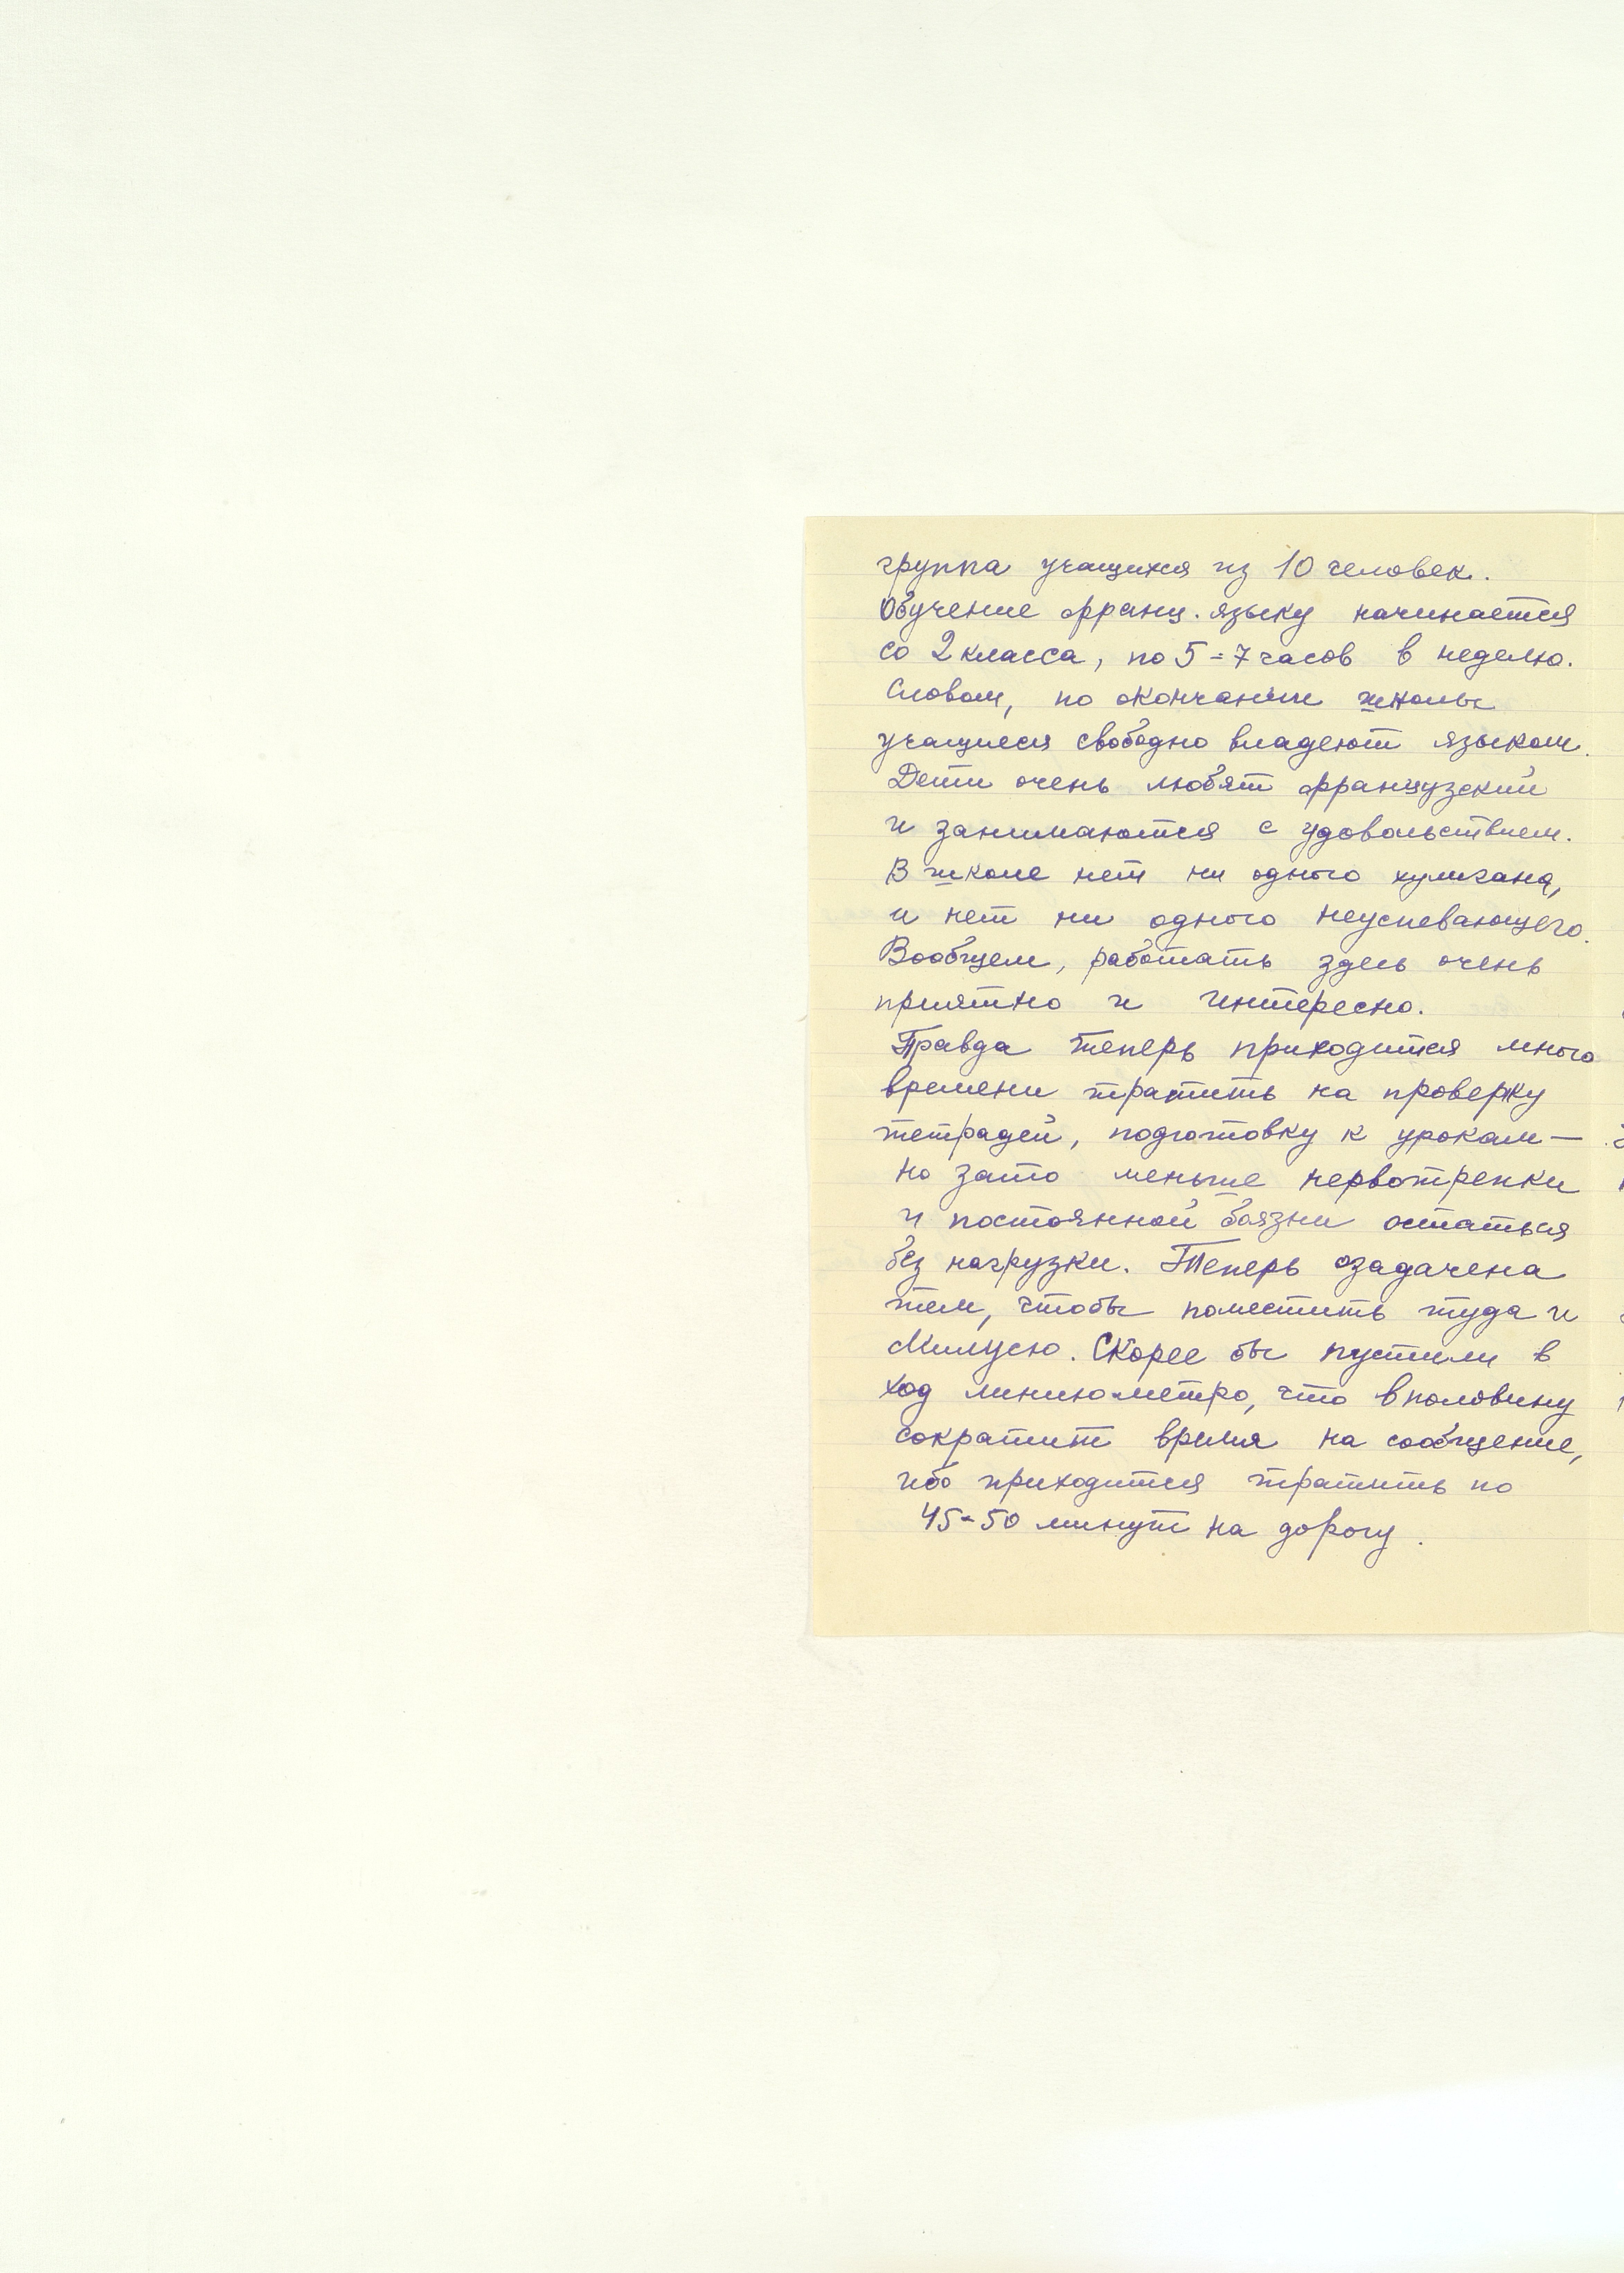 группа учащихся из 10 человек.
Обучение франц. языку начинается
со 2 класса, по 5-7 часов в неделю.
Словом, по окончании школы
учащиеся свободно владеют языком.
Дети очень любят французский
и занимаются с удовольствием.
В школе нет ни одного хулигана,
и нет ни одного неуспевающего.
Вообщем, работать здесь очень
приятно и интересно.
Правда теперь приходится много
времени тратить на проверку
тетрадей, подготовку к урокам —
но зато меньше нервотрепки
и постоянной боязни остаться
без нагрузки. Теперь озадачена
тем, чтобы поместить туда и
Милусю. Скорее бы пустили в
ход линию метро, что вполовину
сократит время на сообщение,
ибо приходится тратить по
45-50 минут на дорогу.